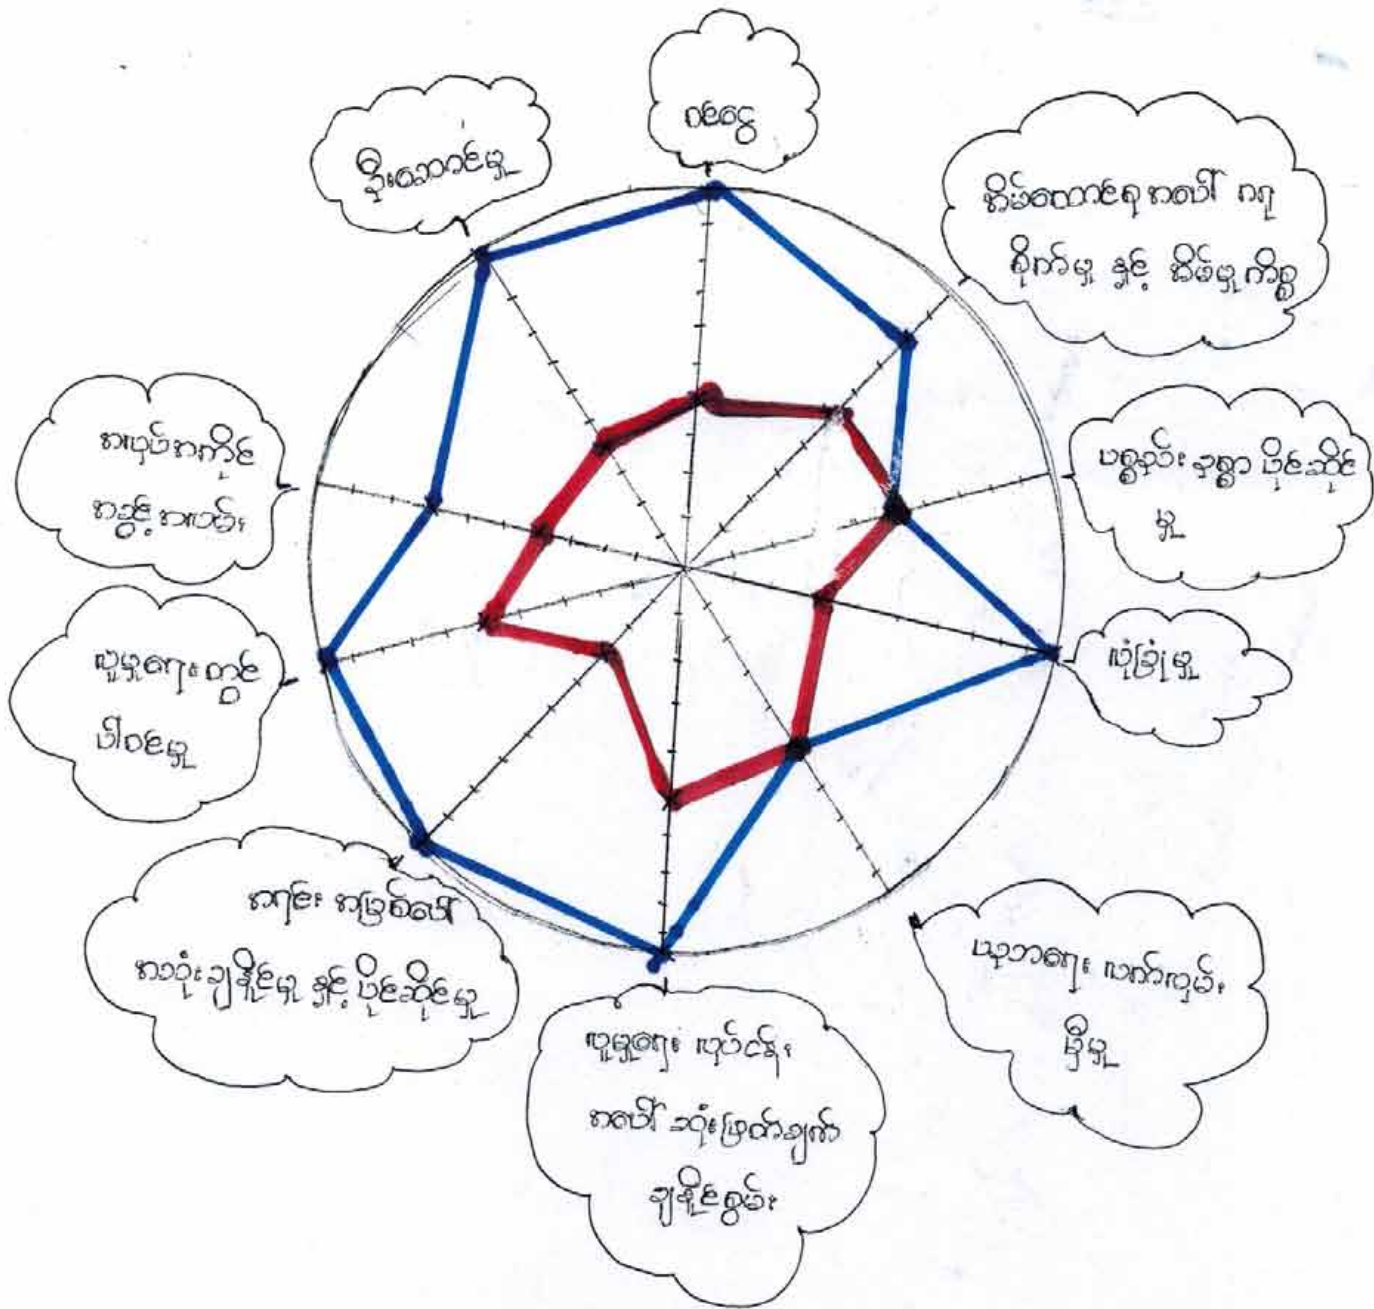 ဝင်ငွေ
အိမ်ထောင်စုအပေါ် ဂရု
စိုက်မှု နှင့် အိမ်မှုကိစ္စ
ပစ္စည်း ဥစ္စာ ပိုင်ဆိုင်
မှု
လုံခြုံမှု
ယုဘရေး လက်လှမ်း
မှီမှု
လူမှုရေး လုပ်ငန်း
အပေါ် ဆုံးဖြတ်ချက်
ချနိုင်စွမ်း
အရင်း အမြစ်ပေါ်
အသုံးချနိုင်မှု နှင့် ပိုင်ဆိုင်မှု
လူမှုရေး တွင်
ပါဝင်မှု
အလုပ်အကိုင်
အခွင့်အလမ်း
ဦးဆောင်မှု